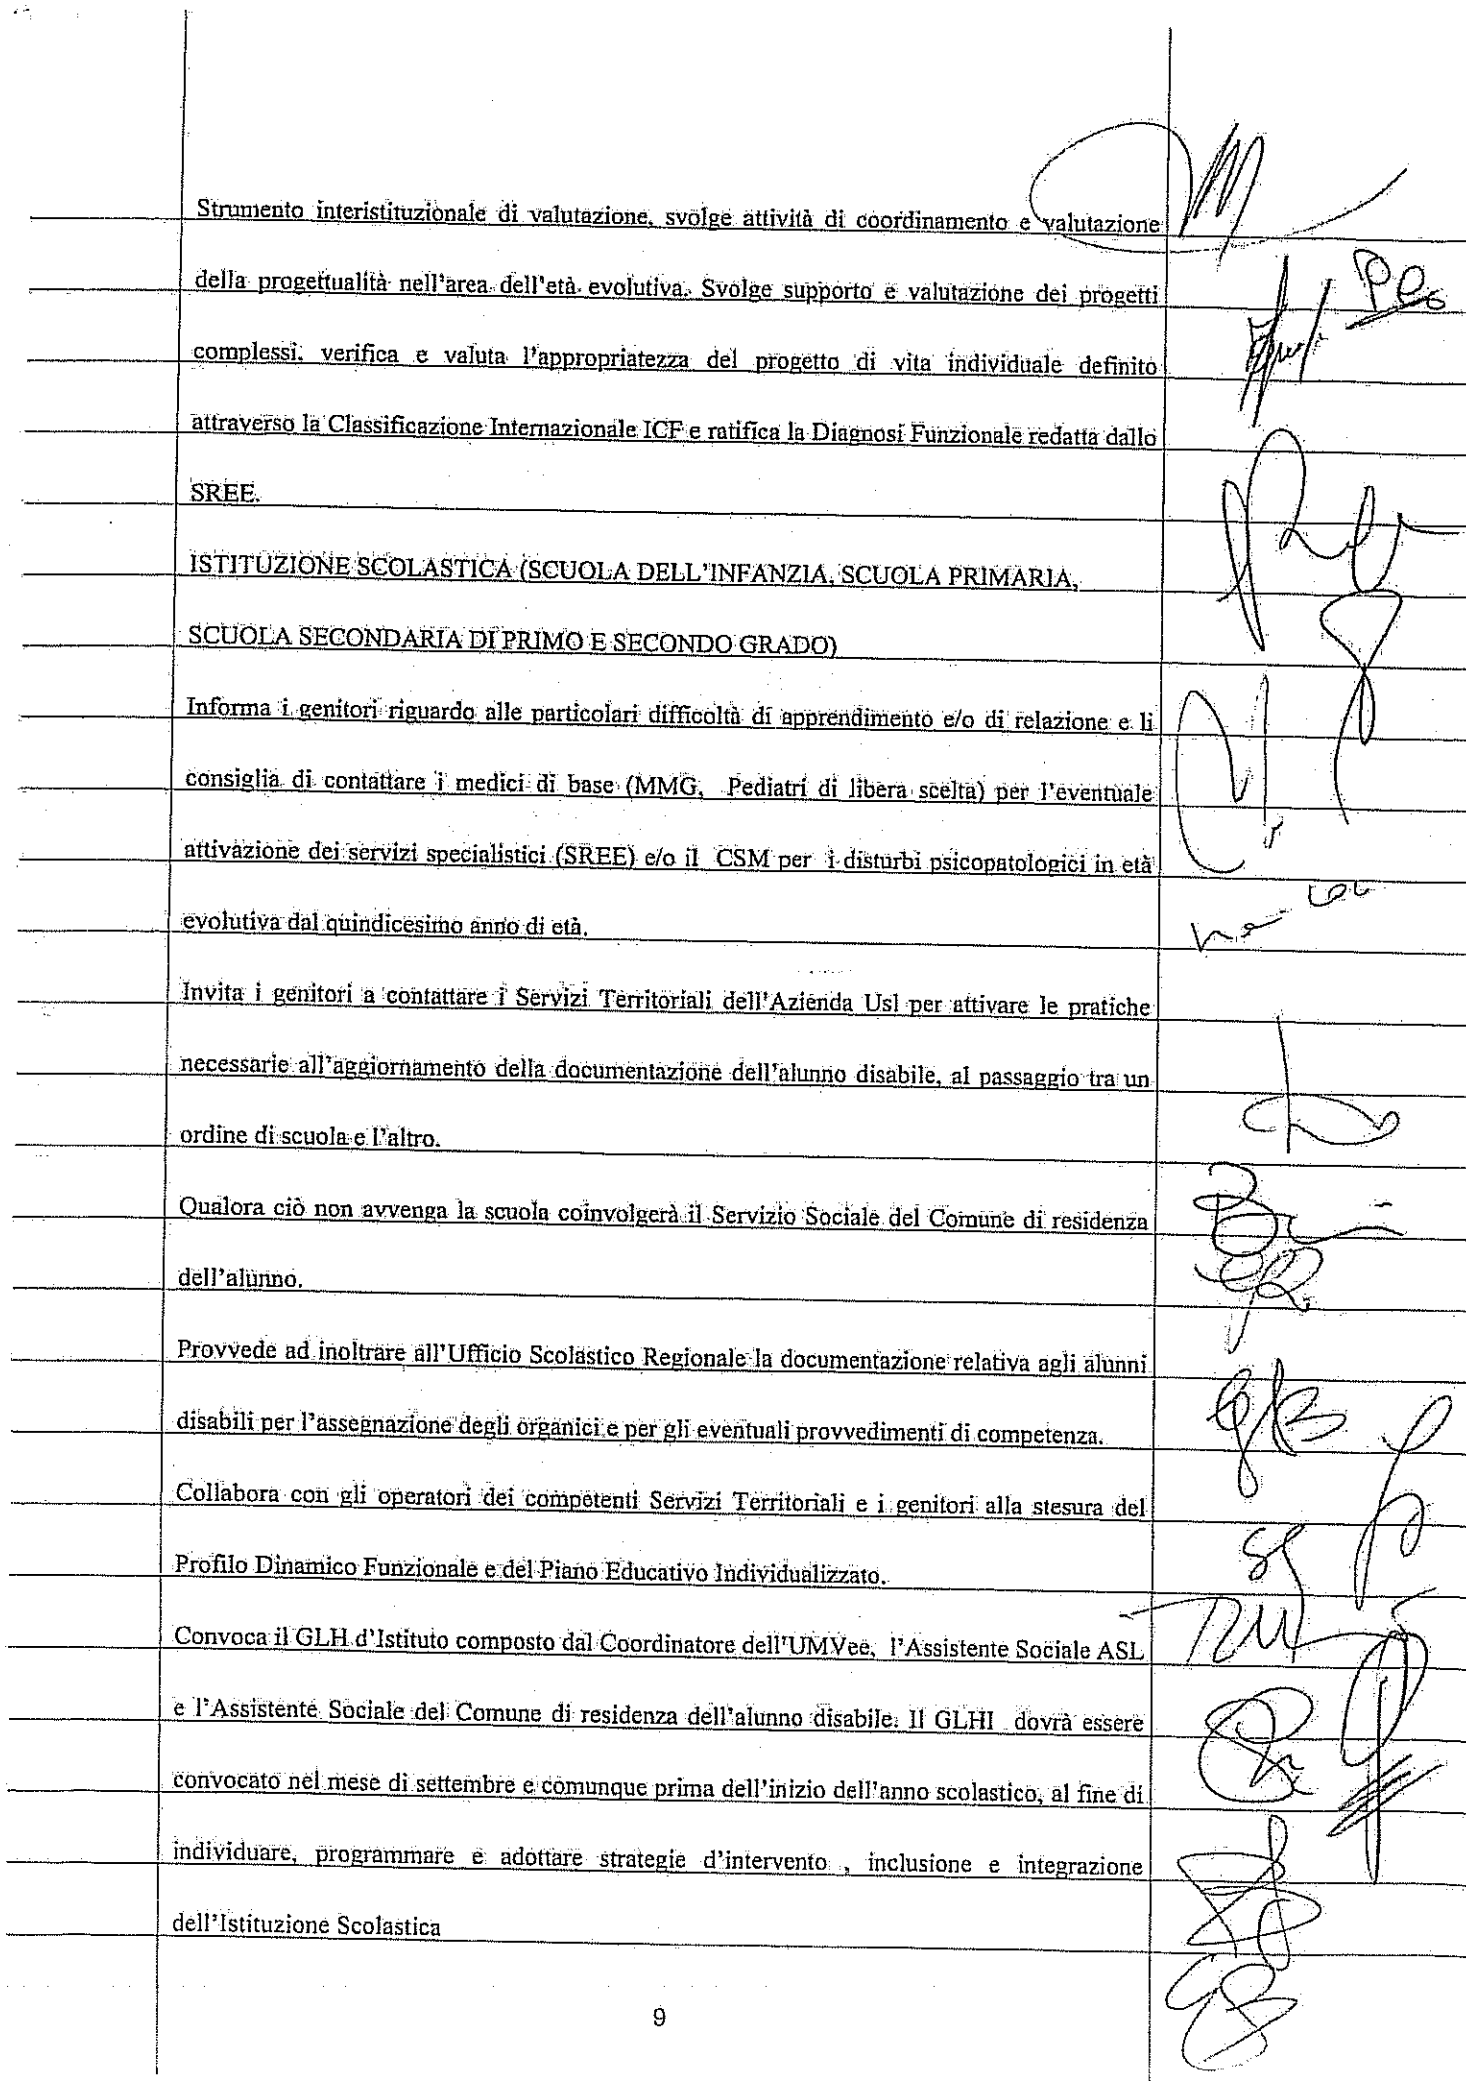 Strumento interistituzionale di valutazione, svolge attività di coordinamento e valutazione
della progettualità nell'area dell'età evolutiva. Svolge supporto e valutazione dei progetti
complessi; verifica e valuta l'appropriatezza del progetto di vita individuale definito
attraverso la Classificazione Internazionale ICF e ratifica la Diagnosi Funzionale redatta dallo
SREE.
ISTITUZIONE SCOLASTICA (SCUOLA DELL'INFANZIA, SCUOLA PRIMARIA,
SCUOLA SECONDARIA DI PRIMO E SECONDO GRADO)
Informa i genitori riguardo alle particolari difficoltà di apprendimento e/o di relazione e li
consiglia di contattare i medici di base (MMG, Pediatri di libera scelta) per l'eventuale
attivazione dei servizi specialistici (SREE) e/o il CSM per i disturbi psicopatologici in età
evolutiva dal quindicesimo anno di età.
Invita i genitori a contattare i Servizi Territoriali dell'Azienda Usl per attivare le pratiche
necessarie all'aggiornamento della documentazione dell'alunno disabile, al passaggio tra un
ordine di scuola e l'altro.
Qualora ciò non avvenga la scuola coinvolgerà il Servizio Sociale del Comune di residenza
dell'alunno.
Provvede ad inoltrare all'Ufficio Scolastico Regionale la documentazione relativa agli alunni
disabili per l'assegnazione degli organici e per gli eventuali provvedimenti di competenza.
Collabora con gli operatori dei competenti Servizi Territoriali e i genitori alla stesura del
Profilo Dinamico Funzionale e del Piano Educativo Individualizzato.
Convoca il GLH d'Istituto composto dal Coordinatore dell'UMVee, l'Assistente Sociale ASL
e l'Assistente Sociale del Comune di residenza dell'alunno disabile. Il GLHI dovrà essere
convocato nel mese di settembre e comunque prima dell'inizio dell'anno scolastico, al fine di
individuare, programmare e adottare strategie d'intervento , inclusione e integrazione
dell'Istituzione Scolastica
9